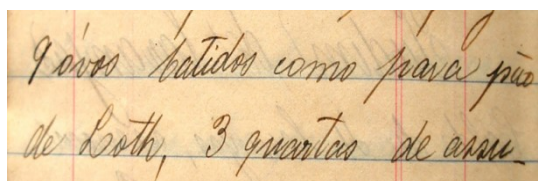 9 óvos batidos como para pão
de Loth, 3 quartas de assu_